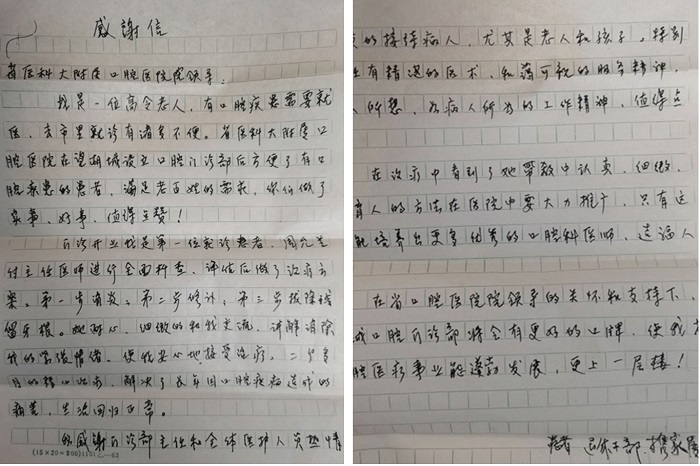 感谢信
省医科大附医口腔医院院领导：
我是一位高令老人，有口腔疾患需要就
医，去市里就诊有诸多不便。省医科大附医口
腔医院在望湖城设立口腔门诊部后方便了有口
腔疾患的患者，满足老百姓的需求，你们做了
实事、好事，值得点赞！
门诊开业我是第一位就诊患者，周先生
付主任医师进行全面检查，评估后做了治疗方
案。第一步消炎，第二步修补，第三步拔除残
留牙根。她耐心、细微的和我交流，讲解消除
我的紧张情绪，使我安心地接受治疗，二个多
月的精心治疗，解决了多年因口腔疾病造成的
痛苦，生活回归正常。
我感谢门诊部主任和全体医护人员热情
(15×20=300)
的接待病人，尤其是老人和孩子，特别
有精湛的医术，和蔼可亲的服务精神，
人所想，为病人所为的工作精神，值得点
在治疗中看到了她带教中认真、细微，
育人的方法在医院中要大力推广，只有这
能培养出更多优秀的口腔科医师，造福人
在省口腔医院院领导的关怀和支持下，
城口腔门诊部将会有更好的口碑，使我
腔医疗事业能蓬勃发展，更上一层楼！
患者 退休干部 携家属